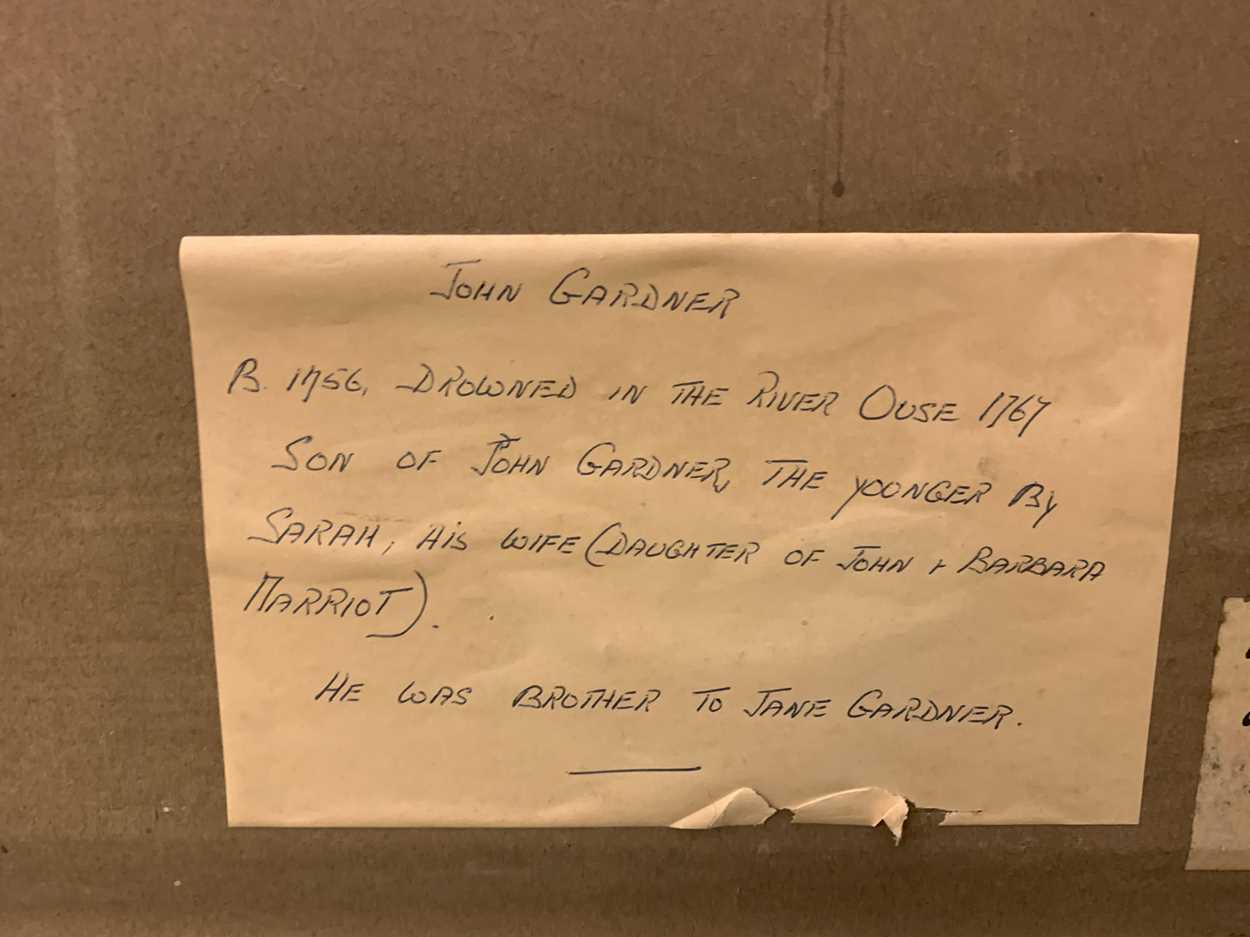 JOHN GARDNER
B. 1756, DROWNED IN THE RIVER OUSE 1767
SON OF JOHN GARDNER, THE YOUNGER BY
SARAH, HIS WIFE (DAUGHTER OF JOHN + BARBARA
MARRIOT).
HE WAS BROTHER TO JANE GARDNER.